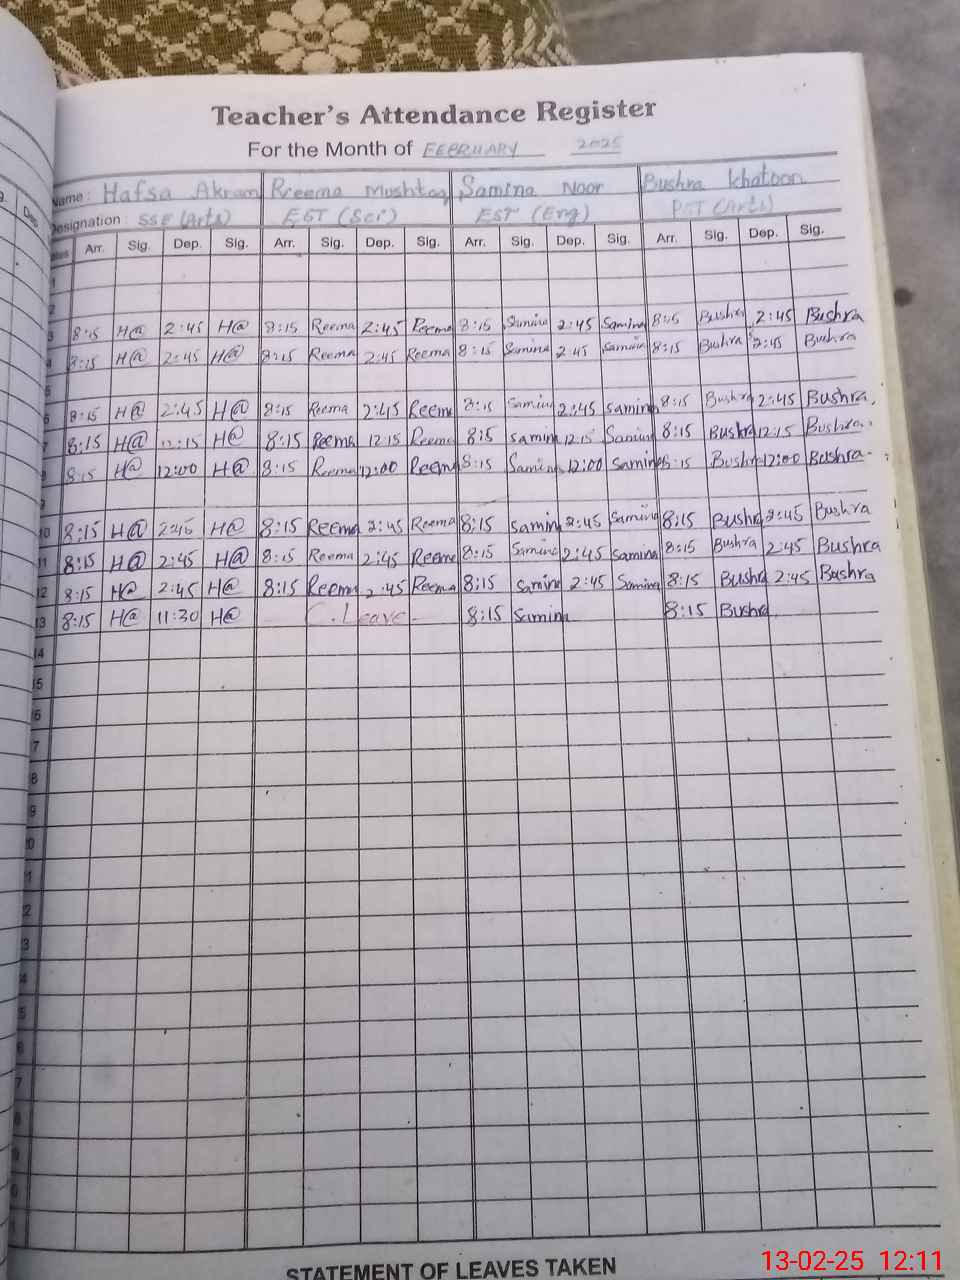 Teacher's Attendance Register
For the Month of FEBRUARY 2025
Name: Hafsa Akram Reema Mushtaq Samina Noor Bushra Khatoon
Designation: SSE (Arts) EST (Sci) EST (Eng) PST (Arts)
Arr. Sig. Dep. Sig. Arr. Sig. Dep. Sig. Arr. Sig. Dep. Sig. Arr. Sig. Dep. Sig.
1
2
3 8:15 H@ 2:45 H@ 8:15 Reema 2:45 Reema 8:15 Samina 2:45 Samina 8:15 Bushra 2:45 Bushra
4 8:15 H@ 2:45 H@ 8:15 Reema 2:45 Reema 8:15 Samina 2:45 Samina 8:15 Bushra 2:45 Bushra
5
6 8:15 H@ 2:45 H@ 8:15 Reema 2:45 Reema 8:15 Samina 2:45 Samina 8:15 Bushra 2:45 Bushra
7 8:15 H@ 12:15 H@ 8:15 Reema 12:15 Reema 8:15 Samina 12:15 Samina 8:15 Bushra 12:15 Bushra
8 8:15 H@ 12:00 H@ 8:15 Reema 12:00 Reema 8:15 Samina 12:00 Samina 8:15 Bushra 12:00 Bushra
10 8:15 H@ 2:45 H@ 8:15 Reema 2:45 Reema 8:15 Samina 2:45 Samina 8:15 Bushra 2:45 Bushra
11 8:15 H@ 2:45 H@ 8:15 Reema 2:45 Reema 8:15 Samina 2:45 Samina 8:15 Bushra 2:45 Bushra
12 8:15 H@ 2:45 H@ 8:15 Reema 2:45 Reema 8:15 Samina 2:45 Samina 8:15 Bushra 2:45 Bushra
13 8:15 H@ 11:30 H@ C. Leave 8:15 Samina 8:15 Bushra
14
15
STATEMENT OF LEAVES TAKEN
13-02-25 12:11